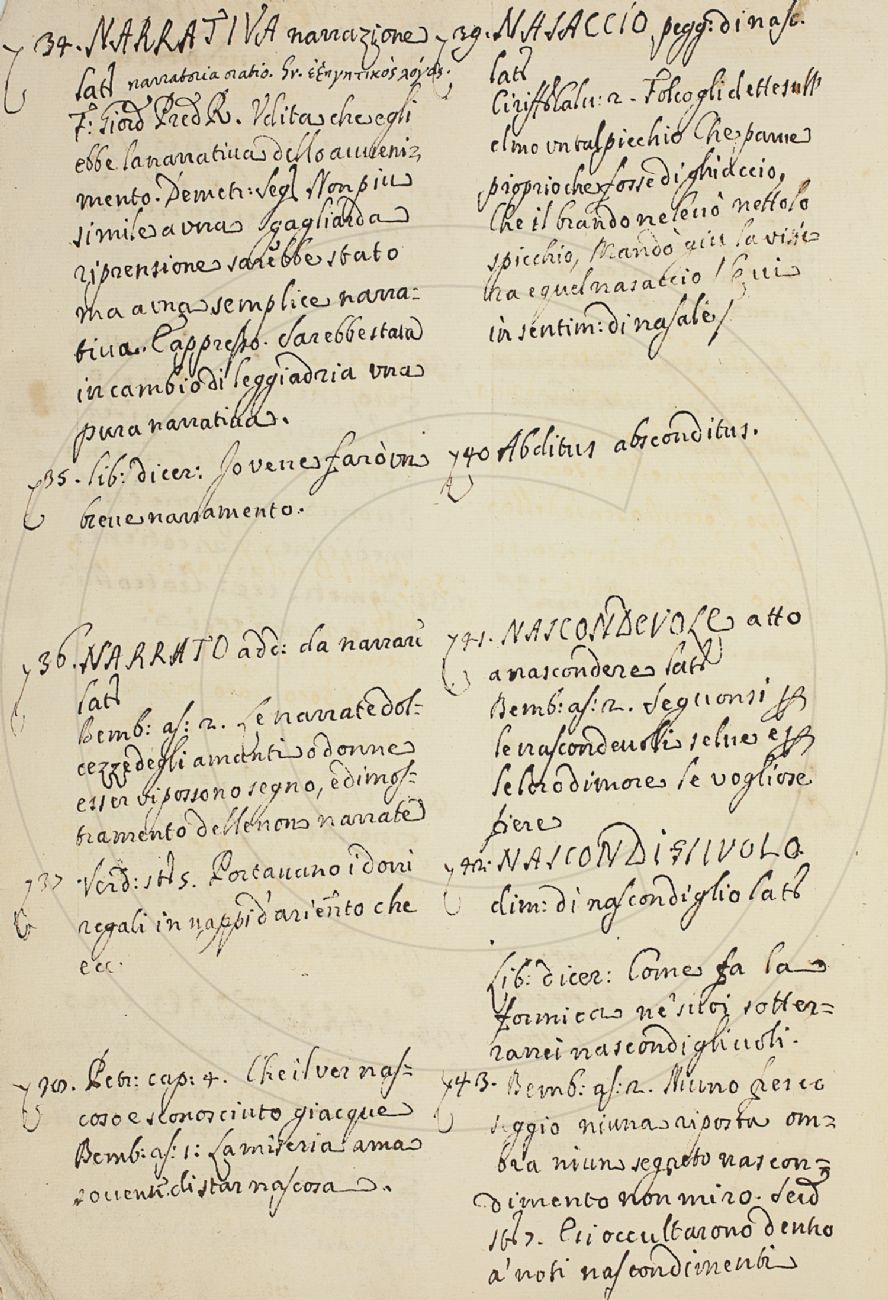 34. NARRATIVA narrazione
lat. narratoria oratio. Gr. ἐξηγητικὸς λόγος.
F: Giord Pred R. Udita che egli
ebbe la narrativa dello avveni-
mento. Demetr: Segn Non più
simile a una gagliarda
riprensione sarebbe stato
ma a una semplice narra=
tiva. E appresso. Sarebbe stata
in cambio di leggiadria una
pura narrativa.
35. Lib: dicer: Io vene farò un
breve narramento.
36. NARRATO add: da narrare
lat.
Bemb: as: 2. Le narrate dol-
cezze degli amanti o donne
esser vi possono segno, e dimos-
tramento delle non narrate
37 Verd: st. 5. Portavano i doni
regali in nappi d'ariento che
ecc.
38. Petr: cap: 4. Che il ver nas-
coso e sconosciuto giacque
Bemb: as: 1: La miseria ama
sovente di star nascosa.
39. NASACCIO pegg: di naso.
lat.
Ciriff Calv: 2. Folco gli dette sull
elmo un tal picchio Che parve
proprio che fosse di ghiaccio,
Che il brando ne levò netto lo
spicchio, Mandò giù la visie
ra e quel nasaccio / Qui
in sentim: di nasale /
40 Abditus absconditus.
41. NASCONDEVOLE atto
a nascondere lat.
Bemb: as: 2. Seguonsi p
le nascondevoli selve e p
le loro dimore le vogliose
fiere
42. NASCONDIGLIVOLO
dim: di nascondiglio lat.
Lib: dicer: Come fa la
formica ne' suoi sotter=
ranei nascondigliuoli.
43. Bemb: as: 2. Niuno fresco
seggio niuna riposta om=
bra niun segreto nascon=
dimento non miro. Serd
st. 7. Essi occultarono dentro
a' noti nascondimenti